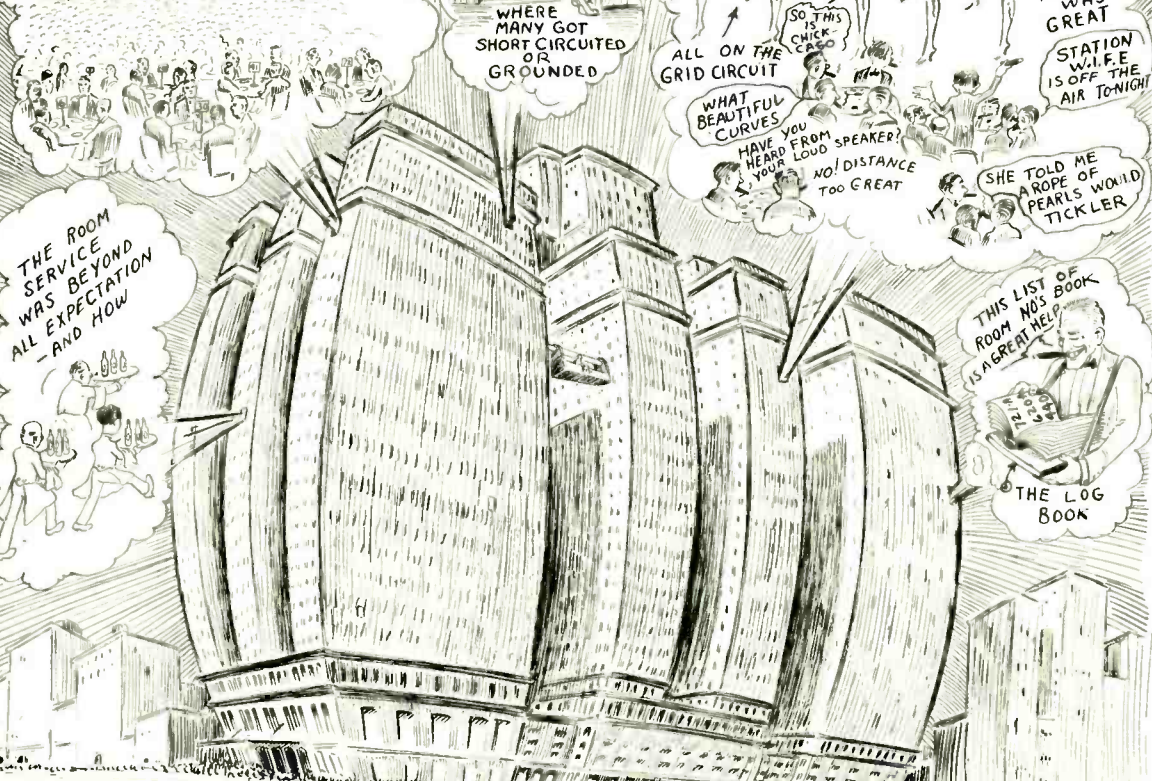 WHERE
MANY GOT
SHORT CIRCUITED
OR
GROUNDED
ALL ON THE
GRID CIRCUIT
SO THIS
IS
CHICK-
CAGO
WAS
GREAT
STATION
W.I.F.E
IS OFF THE
AIR TO-NIGHT
WHAT
BEAUTIFUL
CURVES
HAVE YOU
HEARD FROM
YOUR LOUD SPEAKER?
NO! DISTANCE
TOO GREAT
SHE TOLD ME
A ROPE OF
PEARLS WOULD
TICKLER
THE ROOM
SERVICE
WAS BEYOND
ALL EXPECTATION
—AND HOW
THIS LIST OF
ROOM NO'S BOOK
IS A GREAT HELP
THE LOG
BOOK